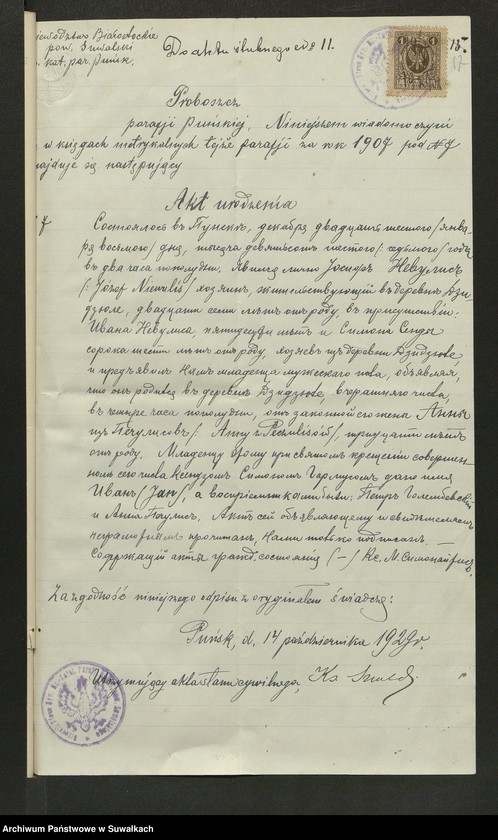 Województwo Białostockie
pow. Suwalski
kat. par. Puńsk.
Do aktu ślubnego № 11.
1
1
15.
17
Proboszcz
parafji Puńskiej, Niniejszem wiadomo czyni
w księgach metrykalnych tejże parafji za rok 1907 pod № 7
znajduje się następujący
Akt urodzenia
7 Состоялось въ Пунскѣ, декабря двадцать шестого /янва-
ря восьмого/ дня, тысяча девятьсотъ шестого /: седьмого/ года
въ два часа пополудни. Явился лично Іосифъ Невулисъ
/: Józef Niewulis/ хозяинъ, жительствующій въ деревнѣ Дзи-
дзюле, двадцати семи лѣтъ отъ роду, въ присутствіи:
Ивана Невулиса, пятидесяти лѣтъ и Симона
сорока шести лѣтъ отъ роду, хозяевъ изъ деревни Дзидзюле
и предъявилъ Намъ младенца мужескаго пола, объявляя,
что онъ родился въ деревнѣ Дзидзюле вчерашняго числа,
въ четыре часа пополудни, отъ законной его жены Анны
изъ Печулисовъ /: Anny z Peczulisów/, тридцати лѣтъ
отъ роду. Младенцу этому при святомъ крещеніи совершен-
номъ сего числа Ксендзомъ Симономъ дано имя
Иванъ /Jan/ а воспріемниками были: Петръ
и Анна. Актъ сей объявляющему и свидѣтелямъ
неграмотнымъ прочитанъ, Нами только подписанъ.
Содержащій акты гражд. состоянія (—) Кс. М. Симонайтисъ.
Za zgodność niniejszego odpisu z oryginałem świadczę:
Puńsk, d. 14 października 1929 r.
Utrzymujący akta stanu cywilnego, Ks.
Archiwum Państwowe w Suwałkach